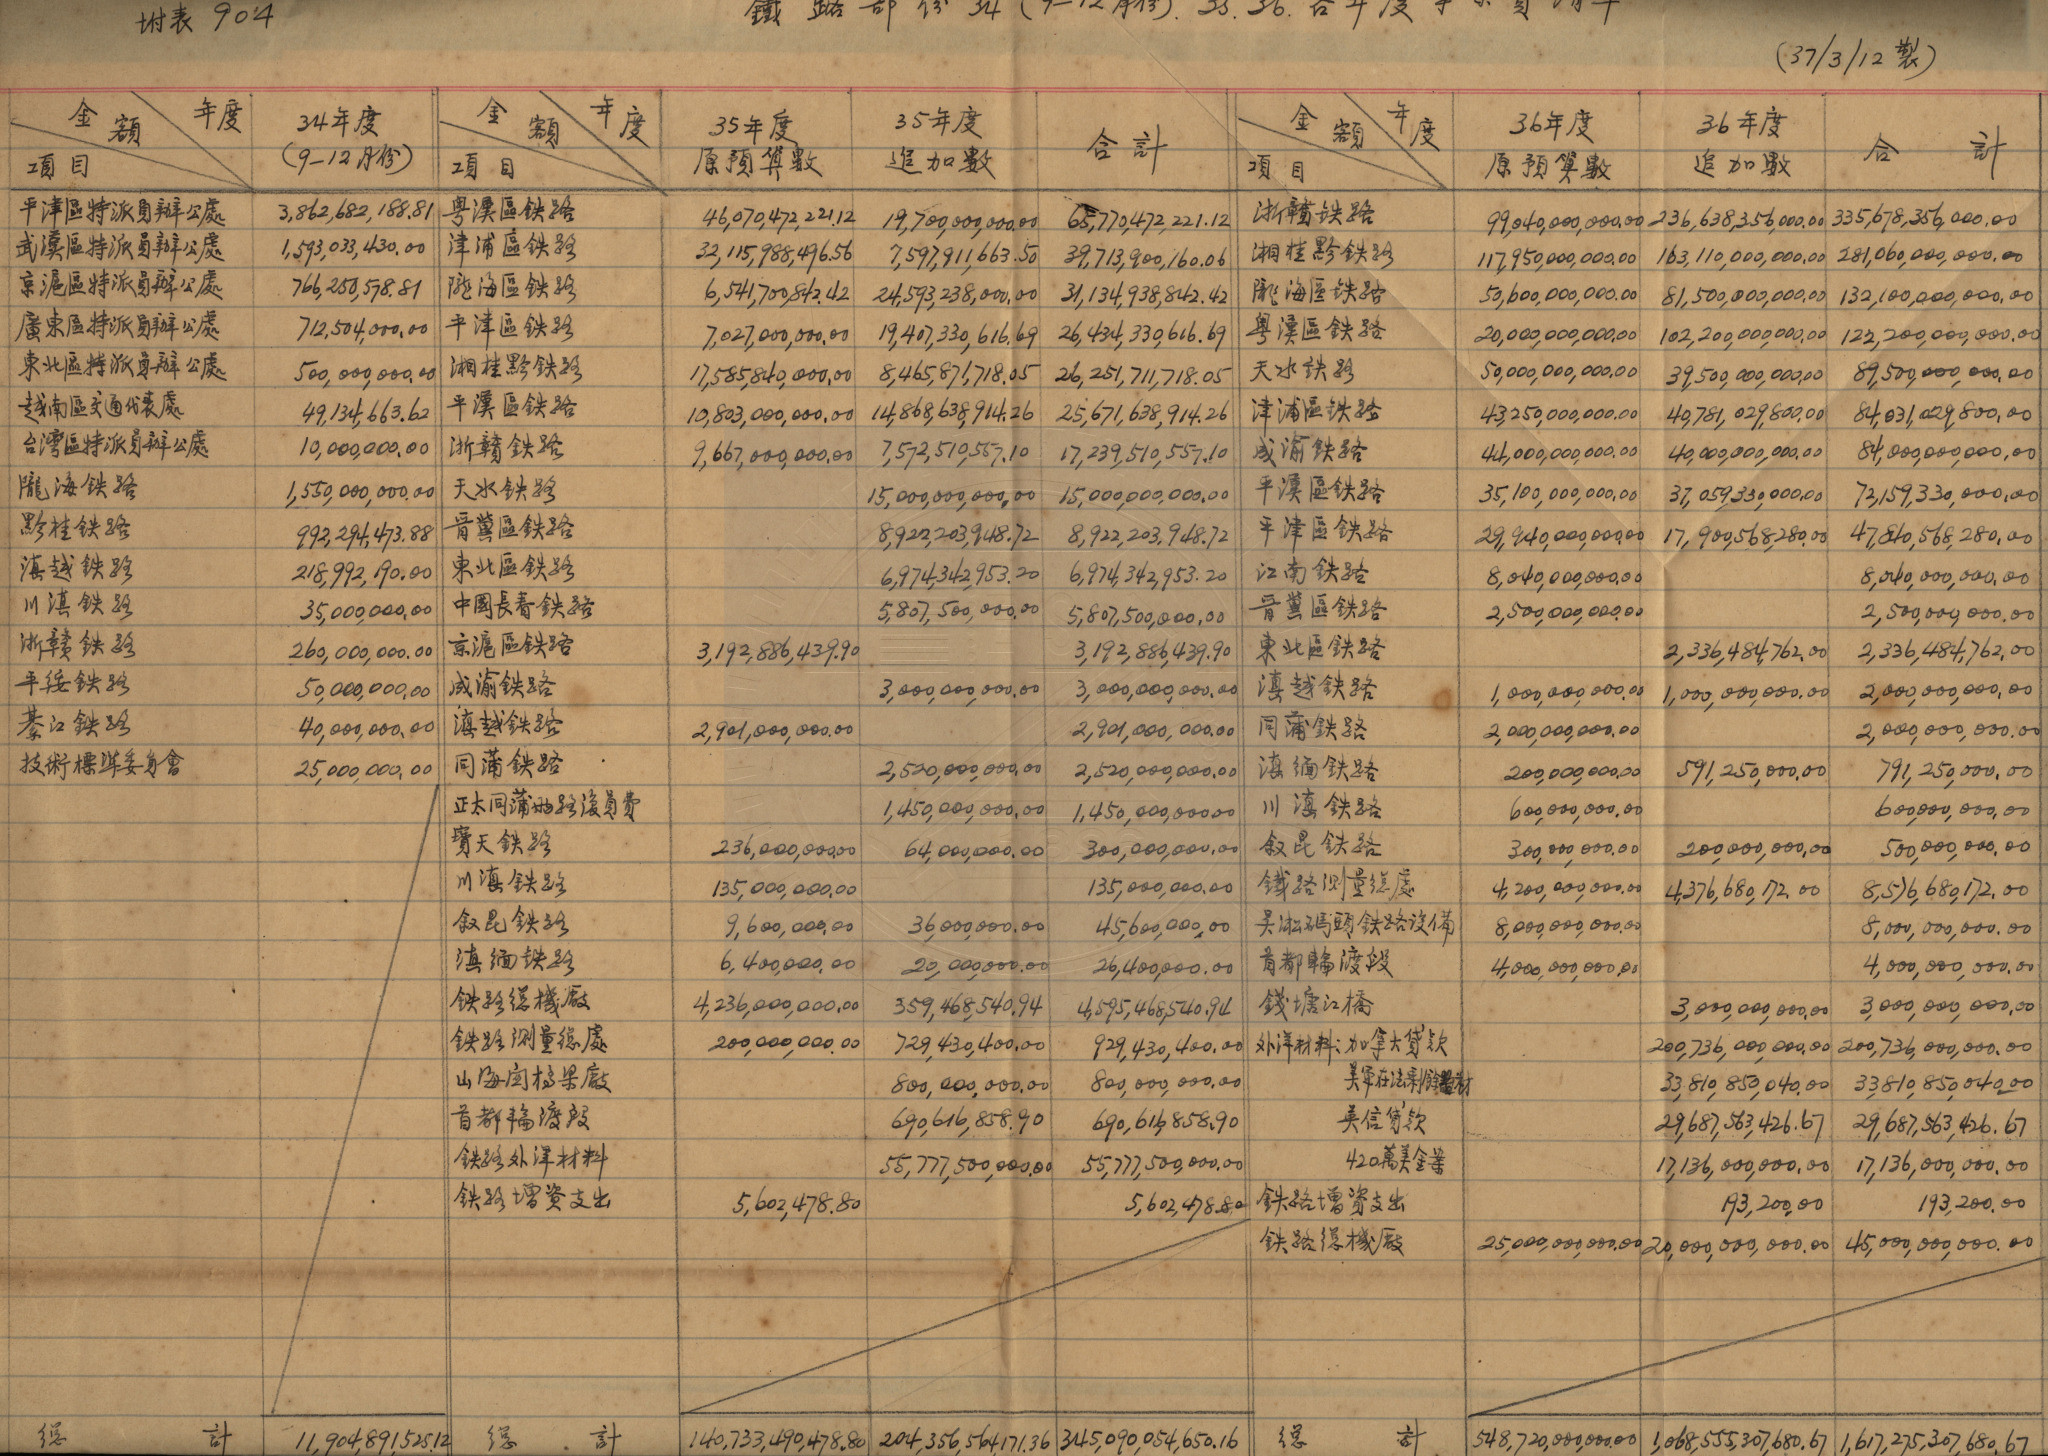 附表 904
鐵路部份34(9-12月份).35.36.各年度
(37/3/12製)
金額 年度 項目 34年度(9-12月份) 金額 年度 項目 35年度原預算數 35年度追加數 合計 金額 年度 項目 36年度原預算數 36年度追加數 合計
平津區特派員辦公處 3,862,682,188.81 粵漢區鉄路 46,070,472,221.12 19,700,000,000.00 65,770,472,221.12 浙贛鉄路 99,040,000,000.00 236,638,356,000.00 335,678,356,000.00
武漢區特派員辦公處 1,593,033,430.00 津浦區鉄路 32,115,988,496.56 7,597,911,663.50 39,713,900,160.06 湘桂黔鉄路 117,950,000,000.00 163,110,000,000.00 281,060,000,000.00
京滬區特派員辦公處 766,250,578.81 隴海區鉄路 6,541,700,842.42 24,593,238,000.00 31,134,938,842.42 隴海區鉄路 50,600,000,000.00 81,500,000,000.00 132,100,000,000.00
廣東區特派員辦公處 712,504,000.00 平津區鉄路 7,027,000,000.00 19,407,330,616.69 26,434,330,616.69 粵漢區鉄路 20,000,000,000.00 102,200,000,000.00 122,200,000,000.00
東北區特派員辦公處 500,000,000.00 湘桂黔鉄路 17,585,840,000.00 8,465,871,718.05 26,251,711,718.05 天水鉄路 50,000,000,000.00 39,500,000,000.00 89,500,000,000.00
越南區交通代表處 49,134,663.62 平漢區鉄路 10,803,000,000.00 14,868,638,914.26 25,671,638,914.26 津浦區鉄路 43,250,000,000.00 40,781,029,800.00 84,031,029,800.00
台灣區特派員辦公處 10,000,000.00 浙贛鉄路 9,667,000,000.00 7,572,510,557.10 17,239,510,557.10 成渝鉄路 44,000,000,000.00 40,000,000,000.00 84,000,000,000.00
隴海鉄路 1,550,000,000.00 天水鉄路 15,000,000,000.00 15,000,000,000.00 平漢區鉄路 35,100,000,000.00 37,059,330,000.00 72,159,330,000.00
黔桂鉄路 992,294,473.88 晉冀區鉄路 8,922,203,948.72 8,922,203,948.72 平津區鉄路 29,940,000,000.00 17,900,568,280.00 47,840,568,280.00
滇越鉄路 218,992,190.00 東北區鉄路 6,974,342,953.20 6,974,342,953.20 江南鉄路 8,040,000,000.00 8,040,000,000.00
川滇鉄路 35,000,000.00 中國長春鉄路 5,807,500,000.00 5,807,500,000.00 晉冀區鉄路 2,500,000,000.00 2,500,000,000.00
浙贛鉄路 260,000,000.00 京滬區鉄路 3,192,886,439.90 3,192,886,439.90 東北區鉄路 2,336,484,762.00 2,336,484,762.00
平綏鉄路 50,000,000.00 成渝鉄路 3,000,000,000.00 3,000,000,000.00 滇越鉄路 1,000,000,000.00 1,000,000,000.00 2,000,000,000.00
綦江鉄路 40,000,000.00 滇越鉄路 2,901,000,000.00 2,901,000,000.00 同蒲鉄路 2,000,000,000.00 2,000,000,000.00
技術標準委員會 25,000,000.00 同蒲鉄路 2,520,000,000.00 2,520,000,000.00 滇緬鉄路 200,000,000.00 591,250,000.00 791,250,000.00
正太同蒲兩路復員費 1,450,000,000.00 1,450,000,000.00 川滇鉄路 600,000,000.00 600,000,000.00
寶天鉄路 236,000,000.00 64,000,000.00 300,000,000.00 叙昆鉄路 300,000,000.00 200,000,000.00 500,000,000.00
川滇鉄路 135,000,000.00 135,000,000.00 鐵路測量總處 4,200,000,000.00 4,376,680,172.00 8,576,680,172.00
叙昆鉄路 9,600,000.00 36,000,000.00 45,600,000.00 吴淞碼頭鉄路設備 8,000,000,000.00 8,000,000,000.00
滇緬鉄路 6,400,000.00 20,000,000.00 26,400,000.00 首都輪渡段 4,000,000,000.00 4,000,000,000.00
鉄路總機廠 4,236,000,000.00 359,468,540.94 4,595,468,540.94 錢塘江橋 3,000,000,000.00 3,000,000,000.00
鉄路測量總處 200,000,000.00 729,430,400.00 929,430,400.00 外洋材料:加拿大貸款 200,736,000,000.00 200,736,000,000.00
山海関橋梁廠 800,000,000.00 800,000,000.00 美軍在法剩餘器材 33,810,850,040.00 33,810,850,040.00
首都輪渡段 690,616,858.90 690,616,858.90 英信貸款 29,687,563,426.67 29,687,563,426.67
鉄路外洋材料 55,777,500,000.00 55,777,500,000.00 420萬美金 17,136,000,000.00 17,136,000,000.00
鉄路增資支出 5,602,478.80 5,602,478.80 鉄路增資支出 193,200.00 193,200.00
鉄路總機廠 25,000,000,000.00 20,000,000,000.00 45,000,000,000.00
總計 11,904,891,525.12 總計 140,733,490,478.80 204,356,564,171.36 345,090,054,650.16 總計 548,720,000,000.00 1,068,555,307,680.67 1,617,275,307,680.67